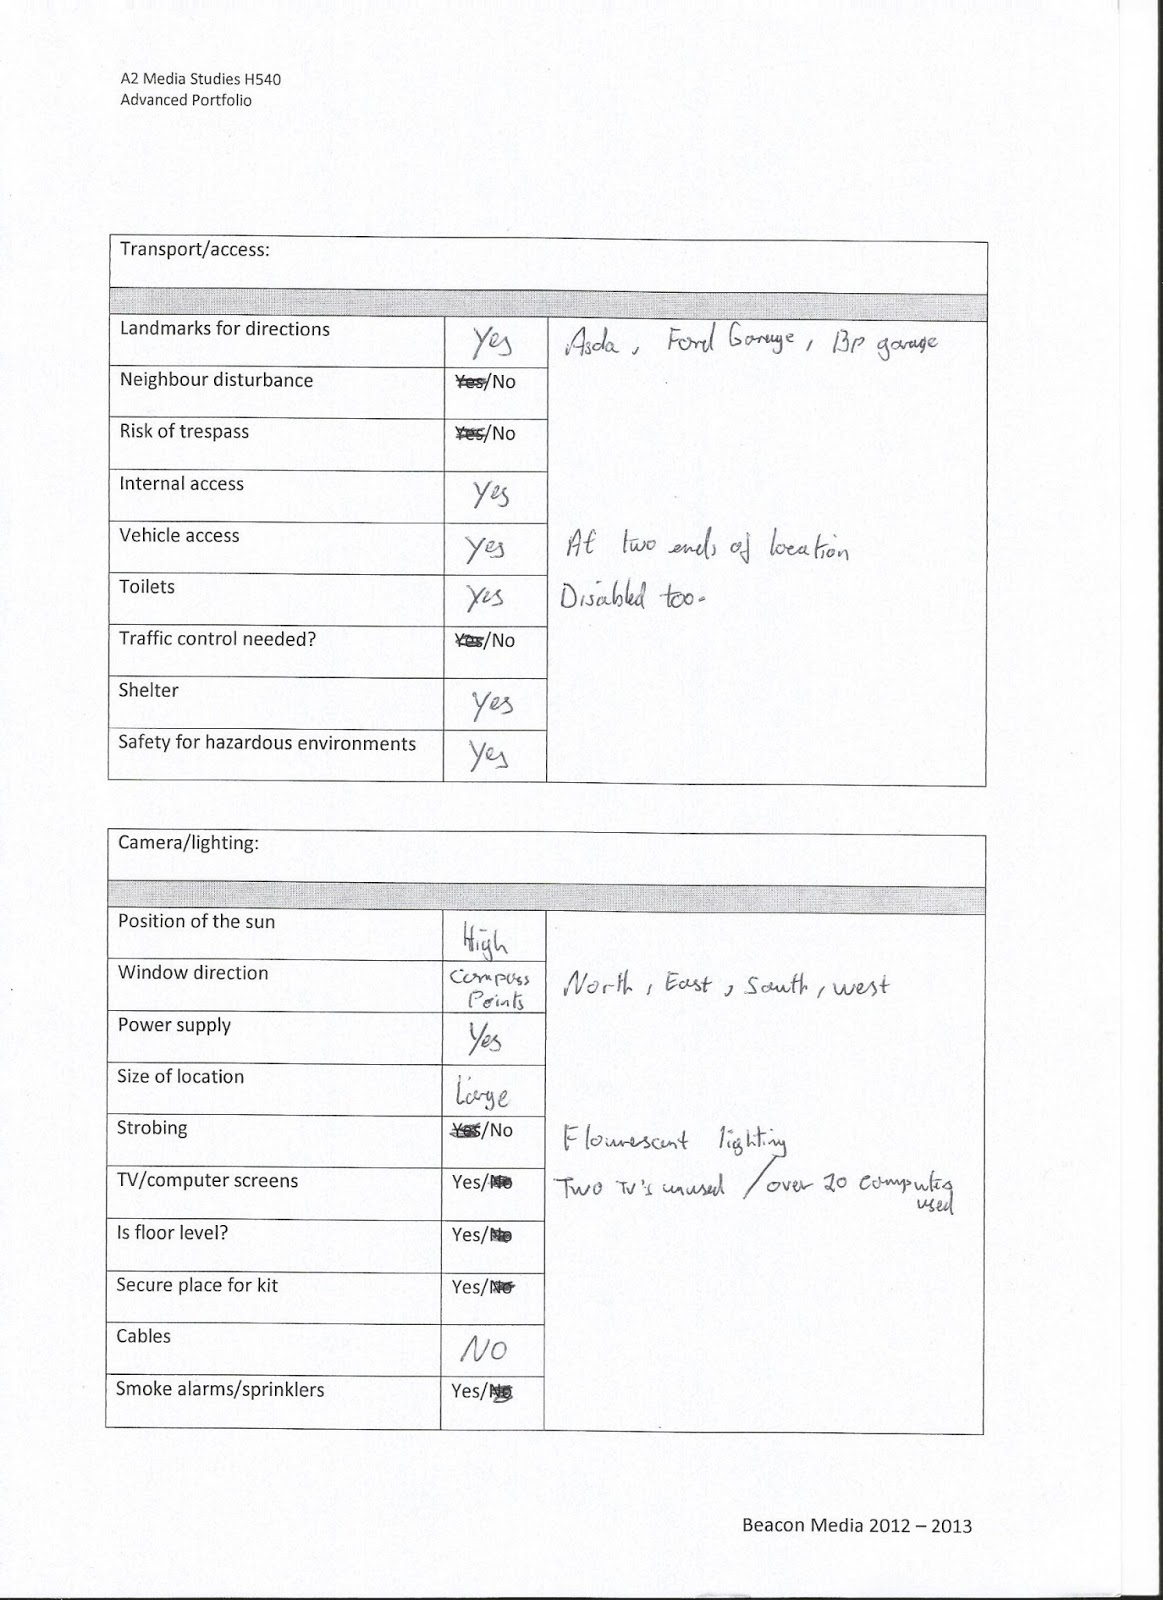 A2 Media Studies H540
Advanced Portfolio
Transport/access:
Landmarks for directions Yes Asda, Ford Garage, BP garage
Neighbour disturbance Yes/No
Risk of trespass Yes/No
Internal access Yes
Vehicle access Yes At two ends of location
Toilets Yes Disabled too.
Traffic control needed? Yes/No
Shelter Yes
Safety for hazardous environments Yes
Camera/lighting:
Position of the sun High
Window direction Compass Points North, East, South, west
Power supply Yes
Size of location Large
Strobing Yes/No Flourescent lighting
TV/computer screens Yes/No Two TV's unused / over 20 computers used
Is floor level? Yes/No
Secure place for kit Yes/No
Cables NO
Smoke alarms/sprinklers Yes/No
Beacon Media 2012 – 2013